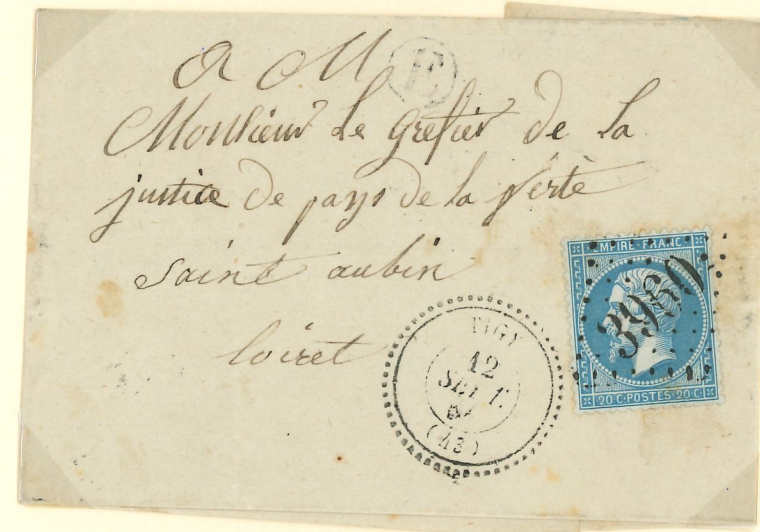 A M
E
Monsieur Le grefier de la
justice de pays de la ferté
saint aubin
loiret
TIGY
12
SEPT.
(43)
EMPIRE·FRANC
3950
20·C·POSTES·20·C